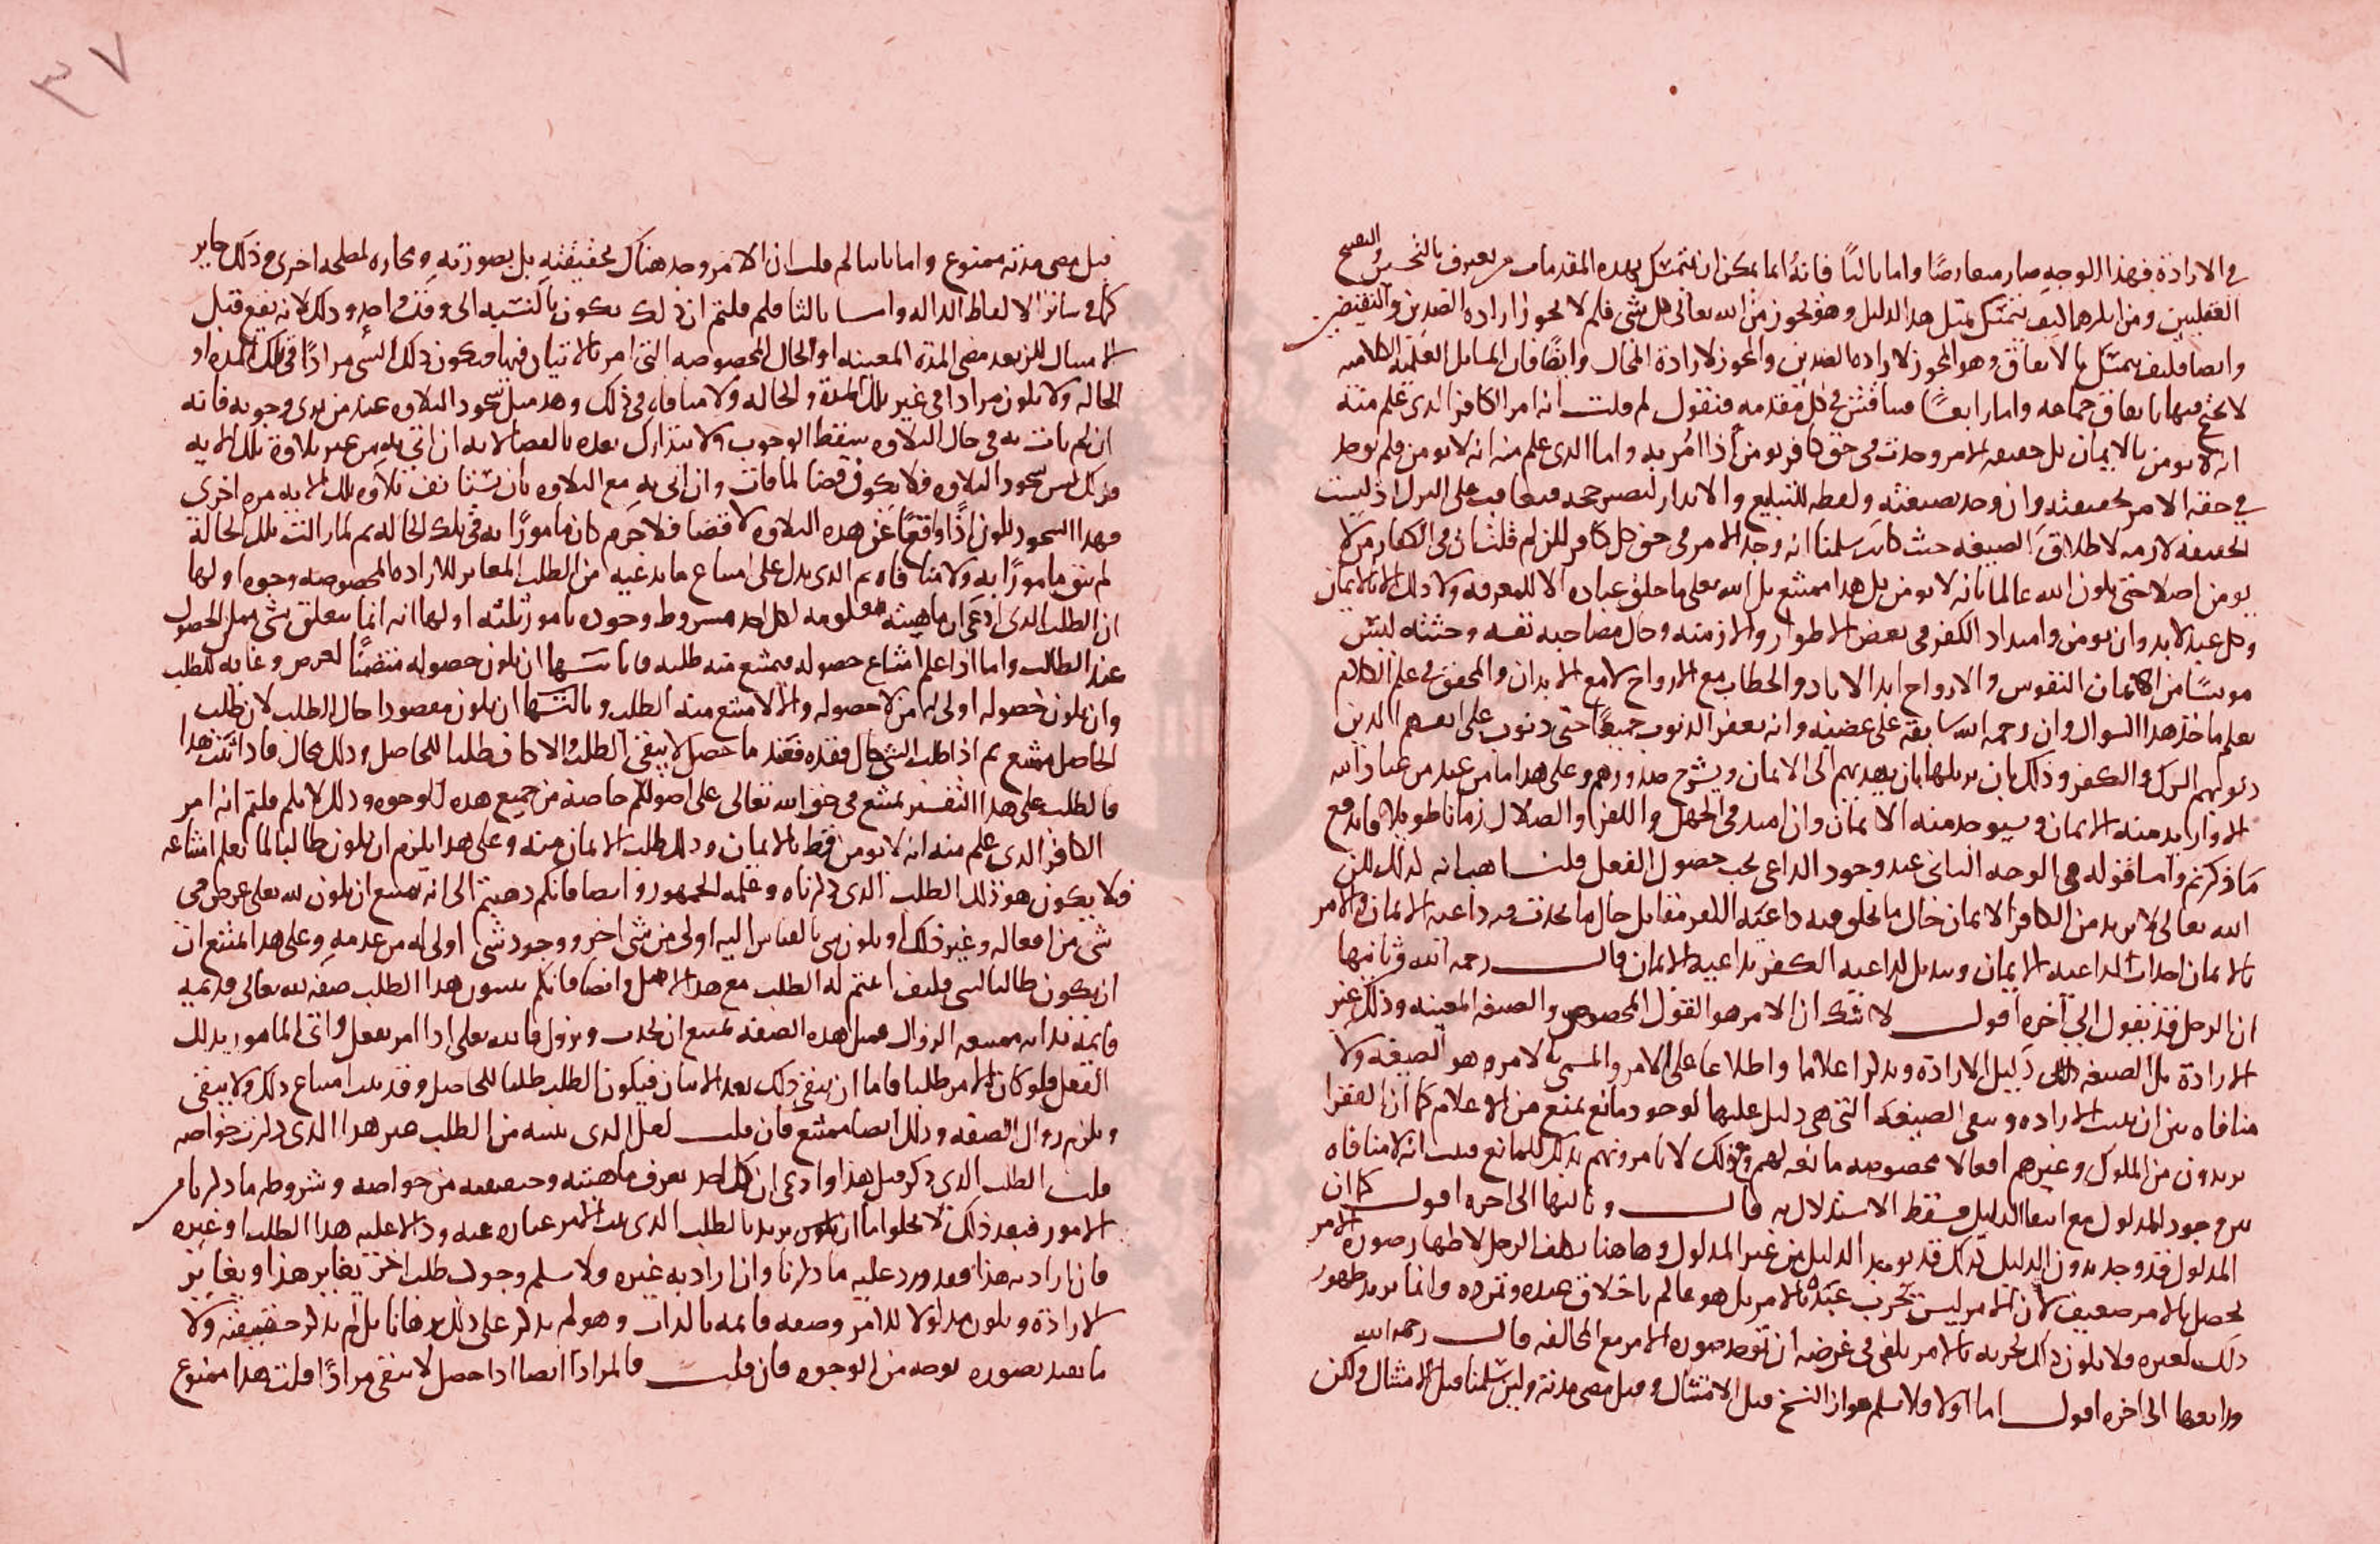 في الارادة فبهذا الوجه صار معارضا واما ثالثا فانه انما يمكن ان يتمسك بهذه المقدمات من يعترف بالتحسين والتقبيح
العقليين ومن انكرهما كيف يتمسك بمثل هذا الدليل وهو يجوز من الله تعالى كل شي فلم لا يجوز ارادة الضدين والنقيضين
وايضا فكيف يتمسك بالاتفاق وهو المجوز لارادة الضدين والمجوز لارادة المحال وايضا فان المسايل العلمية الكلامية
لا يحتج فيها باتفاق جماعه واما رابعا فنناقش في كل مقدمه فنقول لم قلت انه امر الكافر الذي علم منه
انه لا يومن بالايمان بل حقيقه الامر وجدت في حق كافر يومن اذا امر به واما الذي علم منه انه لا يومن فلم يوجد
في حقه الامر بحقيقته وان وجد بصيغته ولفظه للتبليغ والانذار لتصير حجه فيعاقب على الترك اذ ليست
الحقيقه لازمه لاطلاق الصيغه حيث كانت سلمنا انه وجد الامر في حق كل كافر لكن لم قلت ان في الكفار من لا
يومن اصلا حتى يكون الله عالما بانه لا يومن بل هذا ممتنع بل الله تعلى ما خلق عباده الا للمعرفه ولا ذلك الا بالايمان
وكل عبد لابد وان يومن وامتداد الكفر في بعض الاطوار والازمنه وحال مصاحبه نفسه وجثته ليس
مويسا من ايمان النفوس والارواح ابد الاباد والخطاب مع الارواح لا مع الابدان والمحقق في علم الكلام
يعلم ماخذ هذا السوال وان رحمه الله سابقه على غضبه وانه يغفر الذنوب جميعا حتى ذنوب الذين
ذنوبهم الشرك والكفر وذلك بان يزيلها بان يهديهم الى الايمان ويشرح صدورهم وعلى هذا ما من عبد من عباد الله
الا واريد منه الايمان وسيوجد منه الايمان وان امتد في الجهل والكفر والضلال زمانا طويلا فاندفع
ما ذكرتم واما قوله في الوجه الثاني عند وجود الداعي يجب حصول الفعل قلنا هب انه كذلك لكن
الله تعالى لا يريد من الكافر الايمان حال ما يخلق فيه داعيه الكفر مقابل حال ما يحدث فيه داعيه الايمان والامر
بالايمان احداث لداعيه الايمان وتبديل لداعيه الكفر بداعيه الايمان قال رحمه الله وثانيها
ان الرجل قد يقول الى آخره اقول لا شك ان الامر هو القول المخصوص والصيغه المعينه وذلك غير
الارادة بل الصيغه دليل الارادة وتذكر اعلاما واطلاعا على الامر والمسمى بالامر هو الصيغه ولا
منافاه بين ان يثبت الاراده وتنتفي الصيغه التي هي دليل عليها لوجود مانع يمنع من الاعلام كما ان الفقرا
يريدون من الملوك وغيرهم افعالا مخصوصه نافعه لهم ومع ذلك لا يامرونهم بذلك للمانع فثبت انه لا منافاه
بين وجود المدلول مع انتفا الدليل فسقط الاستدلال به قال وثالثها الى اخره اقول كما ان
المدلول قد وجد بدون الدليل كذلك قد يوجد الدليل من غير المدلول وهاهنا تكلف الرجل لاظهار صورة الامر
يحصل بالامر ضعيف لان الامر ليس يجرب عبده بالامر بل هو عالم باخلاق عبده وتمرده وانما يريد ظهور
ذلك لغيره ولا يكون ذلك تجربه بالامر بل يكفي في غرضه ان توجد صورة الامر مع المخالفه قال رحمه الله
ورابعها الى اخره اقول اما اولا فلا نسلم جواز النسخ قبل الامتثال وقبل مضي مدته ولين سلمنا قبل الامتثال ولكن
٣٧
قبل مضي مدته ممنوع واما ثانيا لم قلت ان الامر وجد هناك بحقيقته بل بصورته ومجازه لمصلحه اخرى وذلك جايز
كما في سائر الالفاظ الداله واما ثالثا فلم قلتم ان ذلك يكون بالنسبه الى وقت واحد وذلك لانه يقع قبل
الامتثال لكن بعد مضي المدة المعينه او الحال المخصوصه التي امر بالاتيان فيها فيكون ذلك الشي مرادا في تلك المده او
الحاله ولا يكون مرادا في غير تلك المدة والحاله ولا منافاه في ذلك وهذا مثل سجود التلاوه عند من يرى وجوبه فانه
ان لم يات به في حال التلاوه يسقط الوجوب ولا يتدارك بعده بالقضا لانه ان اتى به من غير تلاوة تلك الايه
فذلك ليس سجود التلاوه فلا يكون قضا لما فات وان اتى به مع التلاوه بان تستانف تلاوه تلك الايه مره اخرى
فهذا السجود يكون اذا واقعا عن هذه التلاوه لا قضا فلا جرم كان مامورا به في تلك الحاله ثم لما زالت تلك الحالة
لم يبق مامورا به ولا منافاه ثم الذي يدل على امتناع ما يدعيه من الطلب المغاير للاراده المخصوصه وجوه اولها
ان الطلب الذي ادعى ان ماهيته معلومه لكل احد مشروط وجوده بامور ثلثه اولها انه انما يتعلق بشي ممكن الحصول
عند الطالب واما اذا علم امتناع حصوله فيمتنع منه طلبه وثانيها ان يكون حصوله متضمنا لغرض وغايه للطلب
وان يكون حصوله اولى له من لا حصوله والا لامتنع منه الطلب وثالثها ان يكون مفقودا حال الطلب لان طلب
الحاصل ممتنع ثم اذا طلب الشي حال فقده فعند ما حصل لا يبقى الطلب والا كان طلبا للحاصل وذلك محال فاذا ثبت هذا
فالطلب على هذا التفسير يمتنع في حق الله تعالى على اصولكم خاصة من جميع هذه الوجوه وذلك لانكم قلتم انه امر
الكافر الذي علم منه انه لا يومن قط بالايمان وذلك طلب الايمان منه وعلى هذا يلزم ان يكون طالبا لما يعلم امتناعه
فلا يكون هو ذلك الطلب الذي ذكرناه وعلمه الجمهور وايضا فانكم ذهبتم الى انه يمتنع ان يكون لله تعلى غرض في
شي من افعاله وغير ذلك او يكون شي بالقياس اليه اولى من شي اخر ووجود شي اولى له من عدمه وعلى هذا امتنع ان
ان يكون طالبا لشي فكيف اثبتم له الطلب مع هذا الاصل وايضا فانكم تثبتون هذا الطلب صفه لله تعالى قديمه
قايمة بذاته ممتنعه الزوال فمثل هذه الصفه يمتنع ان تحدث وتزول فالله تعلى اذا امر بفعل واتى المامور بذلك
الفعل فلو كان الامر طلبا فاما ان يبقى ذلك بعد الاتيان فيكون الطلب طلبا للحاصل وقد ثبت امتناع ذلك ولا يبقى
ويلزم زوال الصفه وذلك ايضا ممتنع فان قلت لعل الذي نثبته من الطلب غير هذا الذي ذكرت خواصه
قلت الطلب الذي ذكر قبل هذا وادعى ان كل احد يعرف ماهيته وحقيقته من خواصه وشروطه ما ذكرنا من
الامور فبعد ذلك لا يخلو اما ان يريد بالطلب الذي يثبت الامر عباره عنه ودالا عليه هذا الطلب او غيره
فان اراد به هذا فقد ورد عليه ما ذكرنا وان اراد به غيره فلا نسلم وجود طلب اخر يغاير هذا ويغاير
الارادة ويكون مدلولا للامر وصفه قايمه بالذات وهو لم يذكر على ذلك برهانا بل لم يذكر حقيقته ولا
ما يفيد تصوره بوجه من الوجوه فان قلت فالمراد ايضا اذا حصل لا يبقى مرادا قلت هذا ممنوع